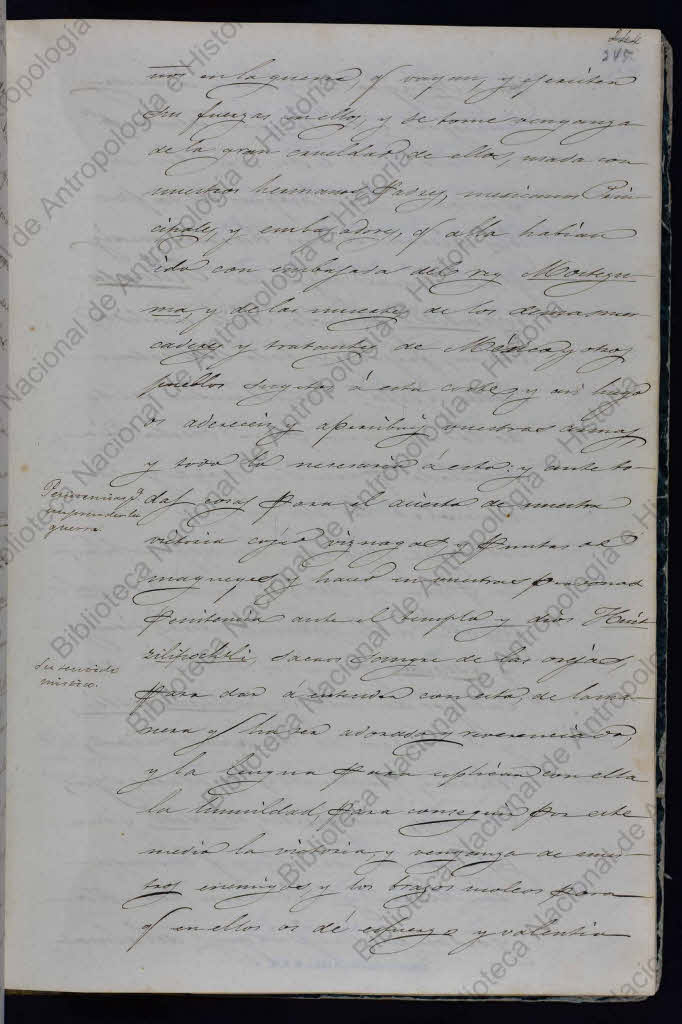 245
nos en la guerra, q vayan, y ejerciten
sus fuerzas en ellos, y se tome venganza
de la gran crueldad de ellos, usada con
nuestros hermanos, Padres, mexicanos Prin-
cipales, y embajadores, q alla habian
ido con embajada del rey Moctezu-
ma, y de las muertes de los demas mer-
caderes y tratantes de México y otros
pueblos sugetos á esta corte, y asi luego
os aderecin y apercibay vuestras armas
y todo lo necesario á esto: y ante to-
das cosas para el acierto de nuestra
victoria cojed viznagas y puntas de
magueyes y haced en vuestras personas
penitencia ante el templo y dios Huit-
zilipochtli, sacaos sangre de las orejas,
para dar á entender con esto, de la ma-
nera q ha ser adorado y reverenciado,
y la lengua para suplicar con ella
la humildad, para conseguir por este
medio la victoria, y venganza de nues-
tros enemigos, y los brazos molcos para
q en ellos os dé esfuerzo y valentia
Penitencias pa
emprender la
guerra.
Su sentido
mistico.
Biblioteca Nacional de Antropología e Historia